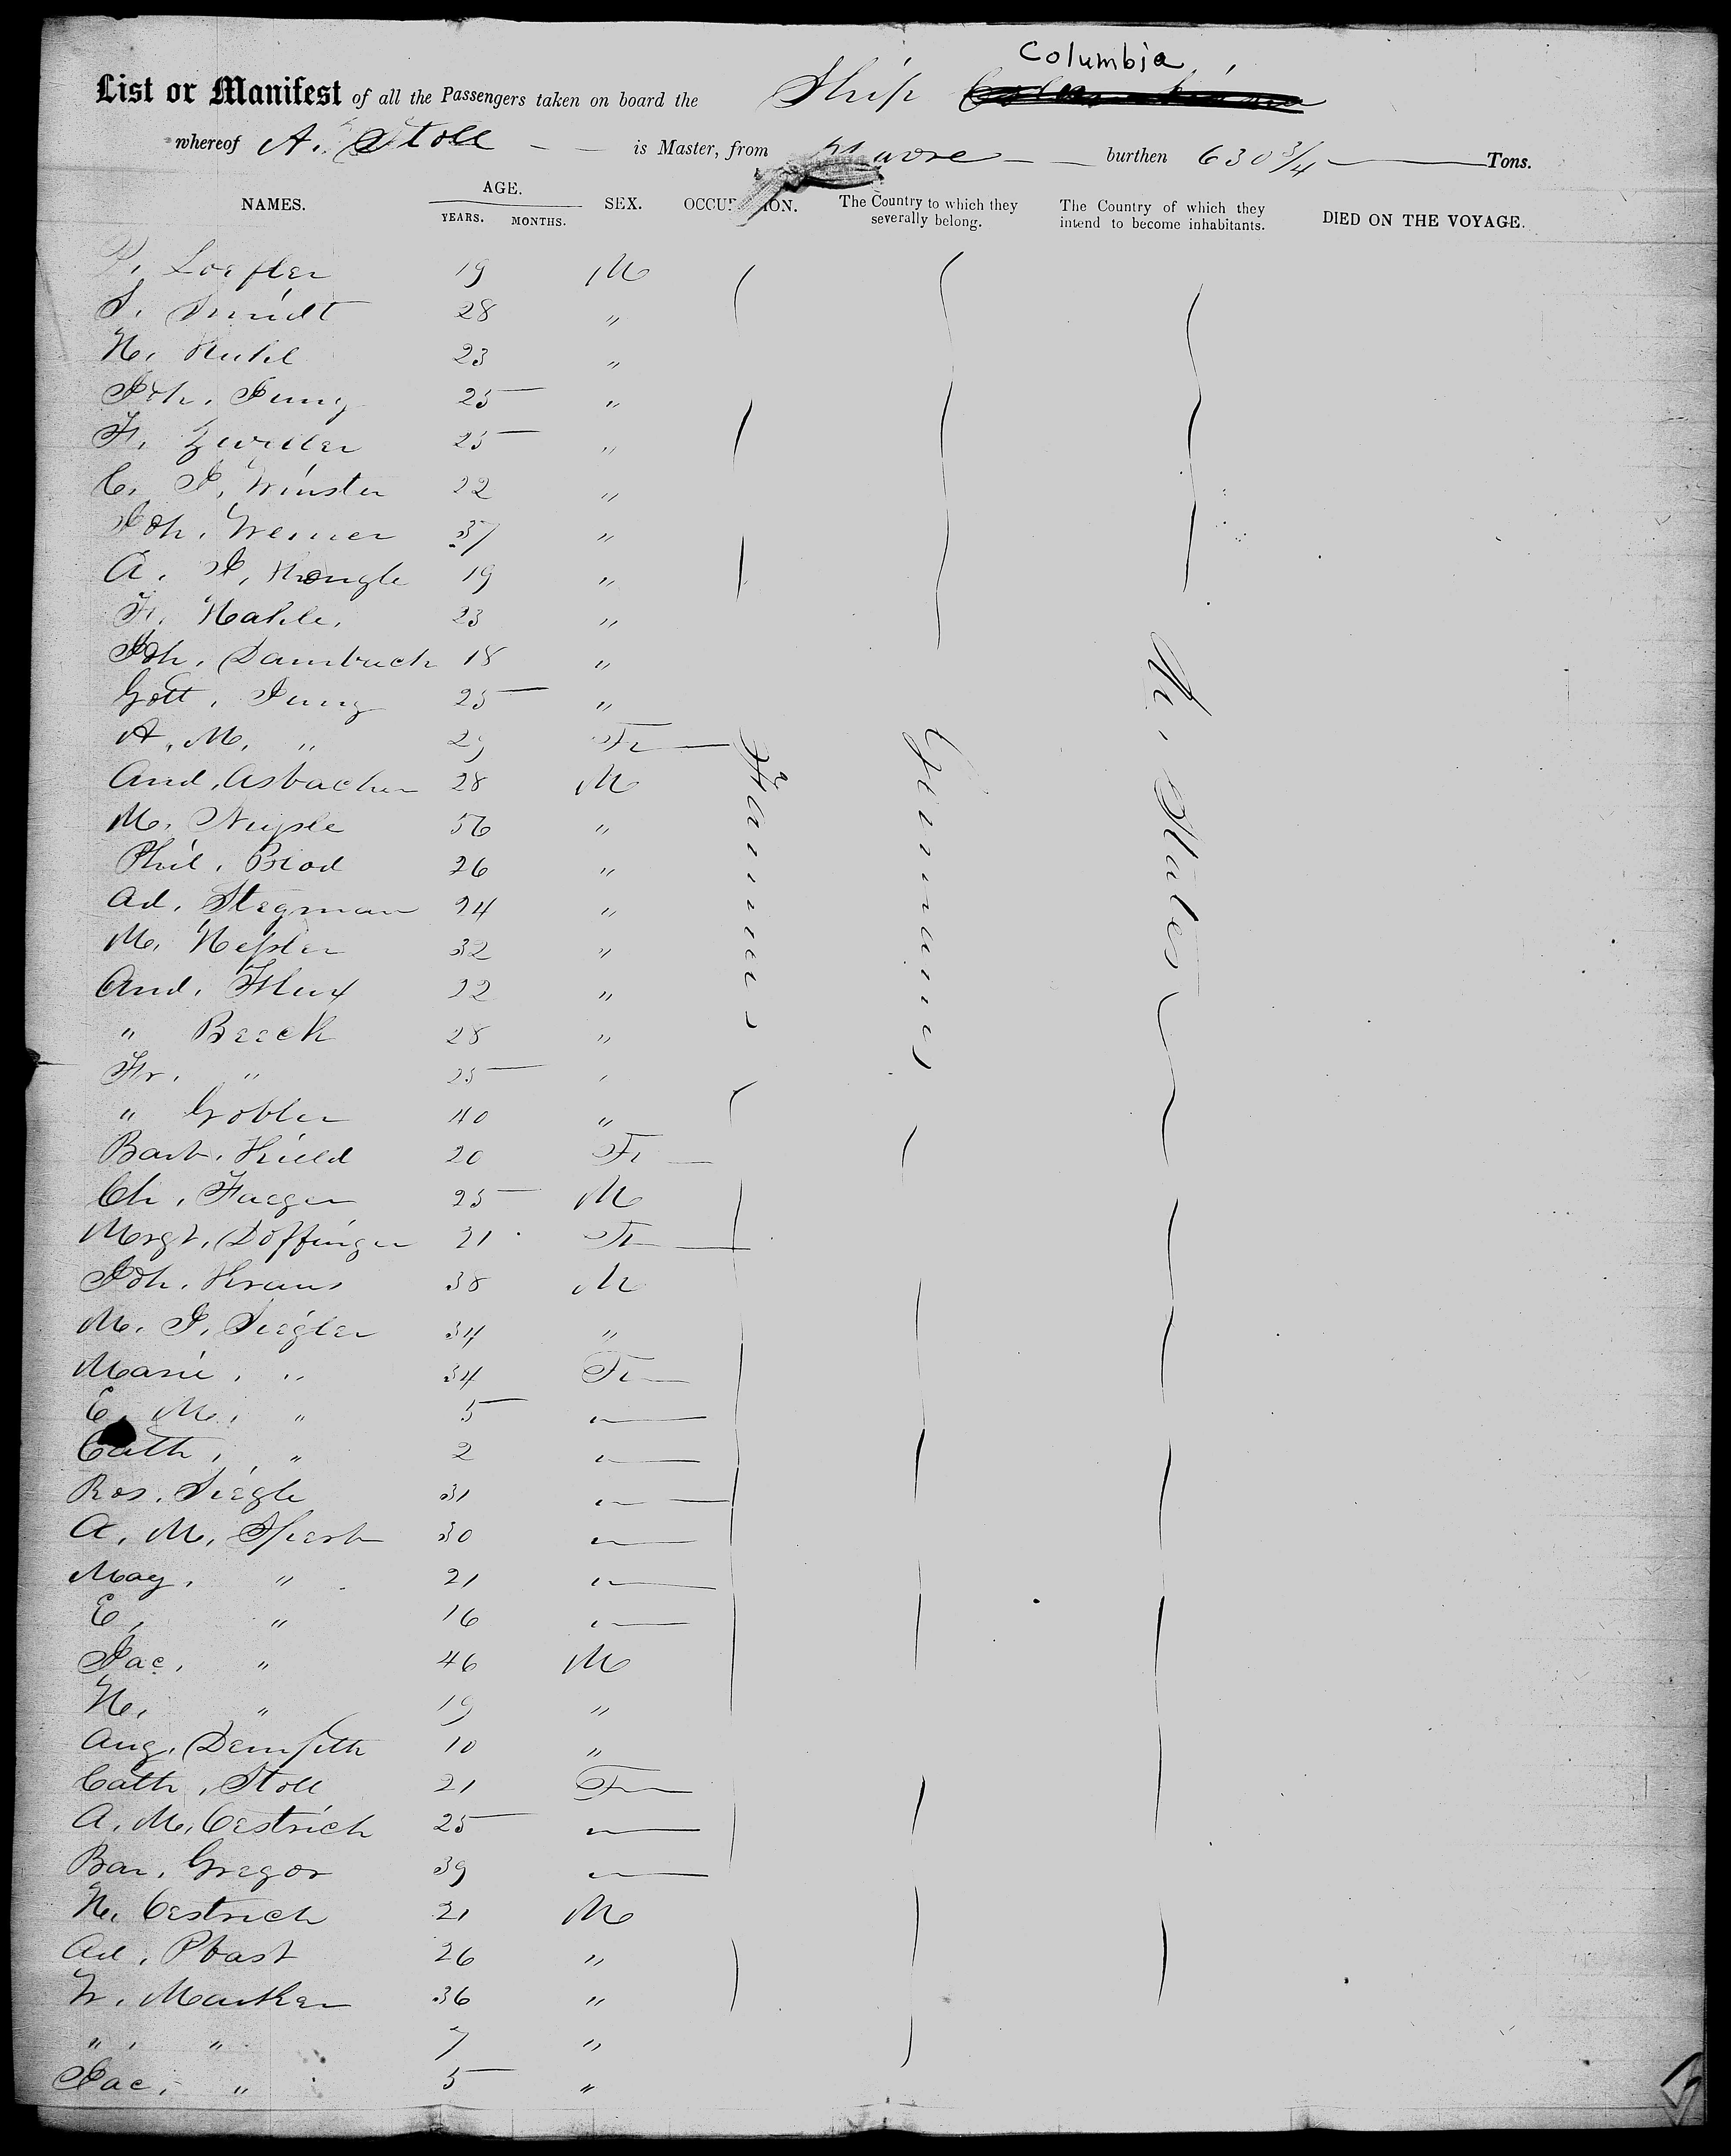 Columbia
List or Manifest of all the Passengers taken on board the Ship
whereof A. Stoll — — is Master, from Havre — — burthen 630 3/4 — Tons.
NAMES. AGE. YEARS. MONTHS. SEX. OCCUPATION. The Country to which they severally belong. The Country of which they intend to become inhabitants. DIED ON THE VOYAGE.
P. Loefler 19 M
S. Smidt 28 "
23 "
Joh. Jung 25 "
F. Zwiller 25 "
C. J. Winster 22 "
Joh. Werner 37 "
A. J. 19 "
F. Hahle, 23 "
Joh. Dambach 18 "
Gott. Jung 25 "
A. M. " 29 Fe
And. Asbacher 28 M
M. 56 "
Phil. Brod 26 "
Ad. Stegman 24 "
M. Hessler 32 "
And. 22 "
" Beeck 28 "
Fr. " 25 "
" Gobler 40 "
Barb. 20 Fe
Ch. Faeger 25 M
Mrgt. Doffinger 21 Fe
Joh. Kraus 38 M
M. J. Siegler 34 "
Marie, " 34 Fe
E. M. " 5 "
Cath, " 2 "
Ros. Siegle 31 "
A. M. 30 "
May. " 21 "
E, " 16 "
Jac. " 46 M
H. " 19 "
Aug. 10 "
Cath. Stoll 21 Fe
A. M. Oestrich 25 "
Bar. Gregor 39 "
H. Oestrich 21 M
Ad. 26 "
W. Marker 36 "
" " 7 "
Jac. " 5 "
Farmers
Germany
U. States